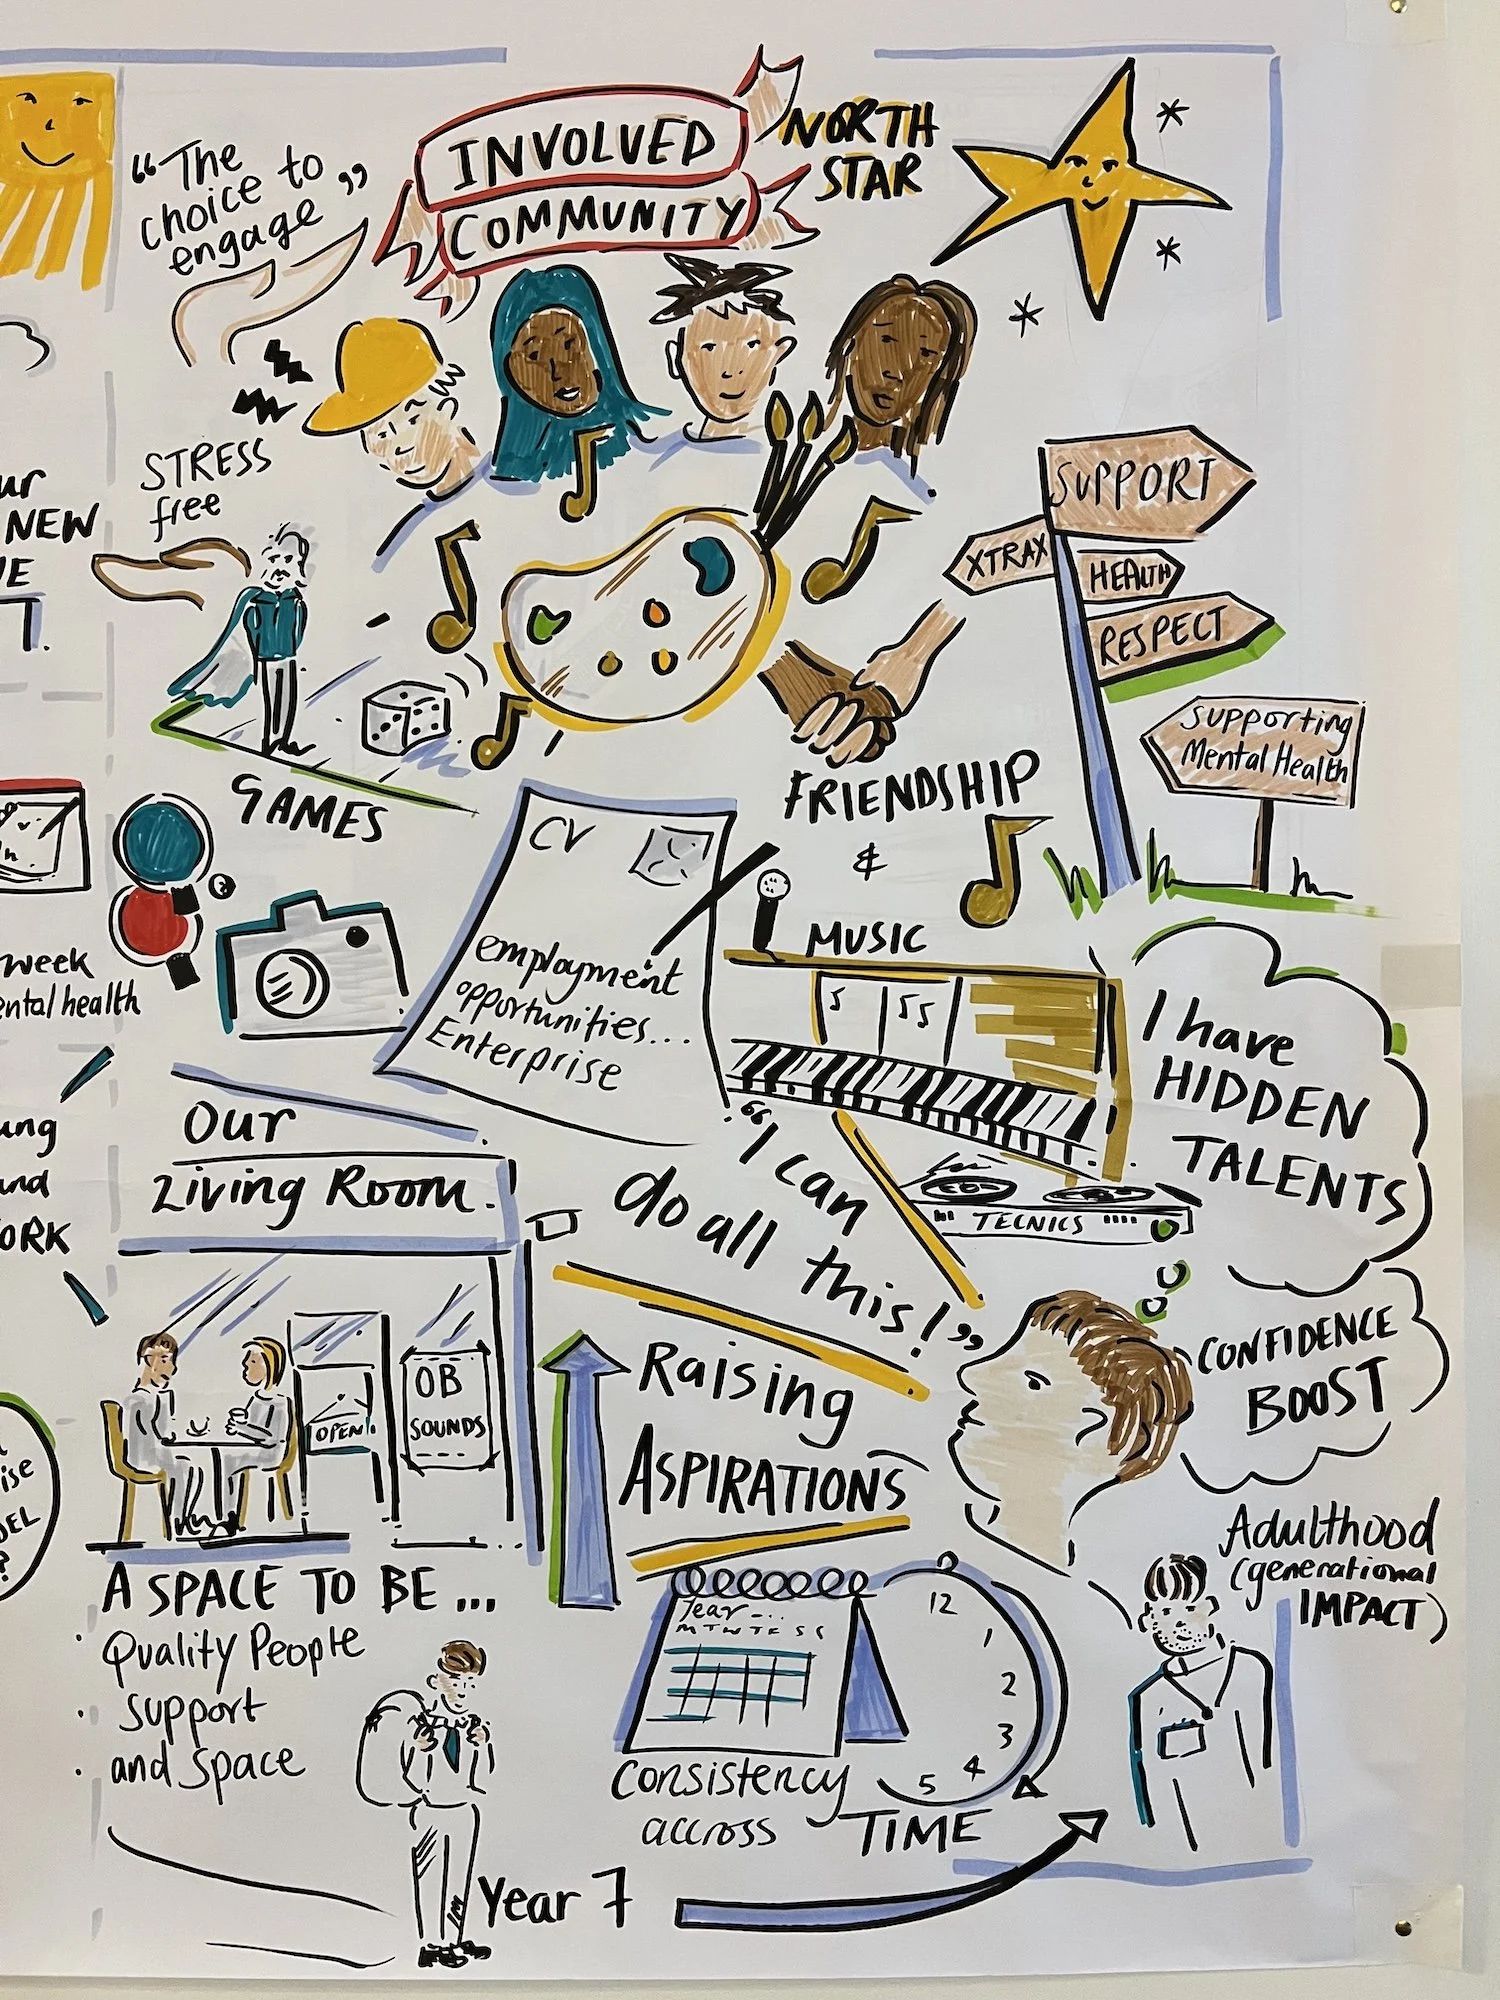 "The
choice to
engage"
INVOLVED
COMMUNITY
NORTH
STAR
STRESS
free
NEW
SUPPORT
XTRAX
HEALTH
RESPECT
Supporting
Mental Health
GAMES
FRIENDSHIP
&
MUSIC
CV
employment
opportunities...
Enterprise
week
mental health
I have
HIDDEN
TALENTS
CONFIDENCE
BOOST
"I can
do all
this!"
TECNICS
Our
Living Room.
OPEN!
OB
SOUNDS
Raising
ASPIRATIONS
A SPACE TO BE...
Quality People
Support
and Space
Year 7
Year -...
M T W T F S S
12
1
2
3
4
5
Consistency
accross
TIME
Adulthood
(generational
IMPACT)